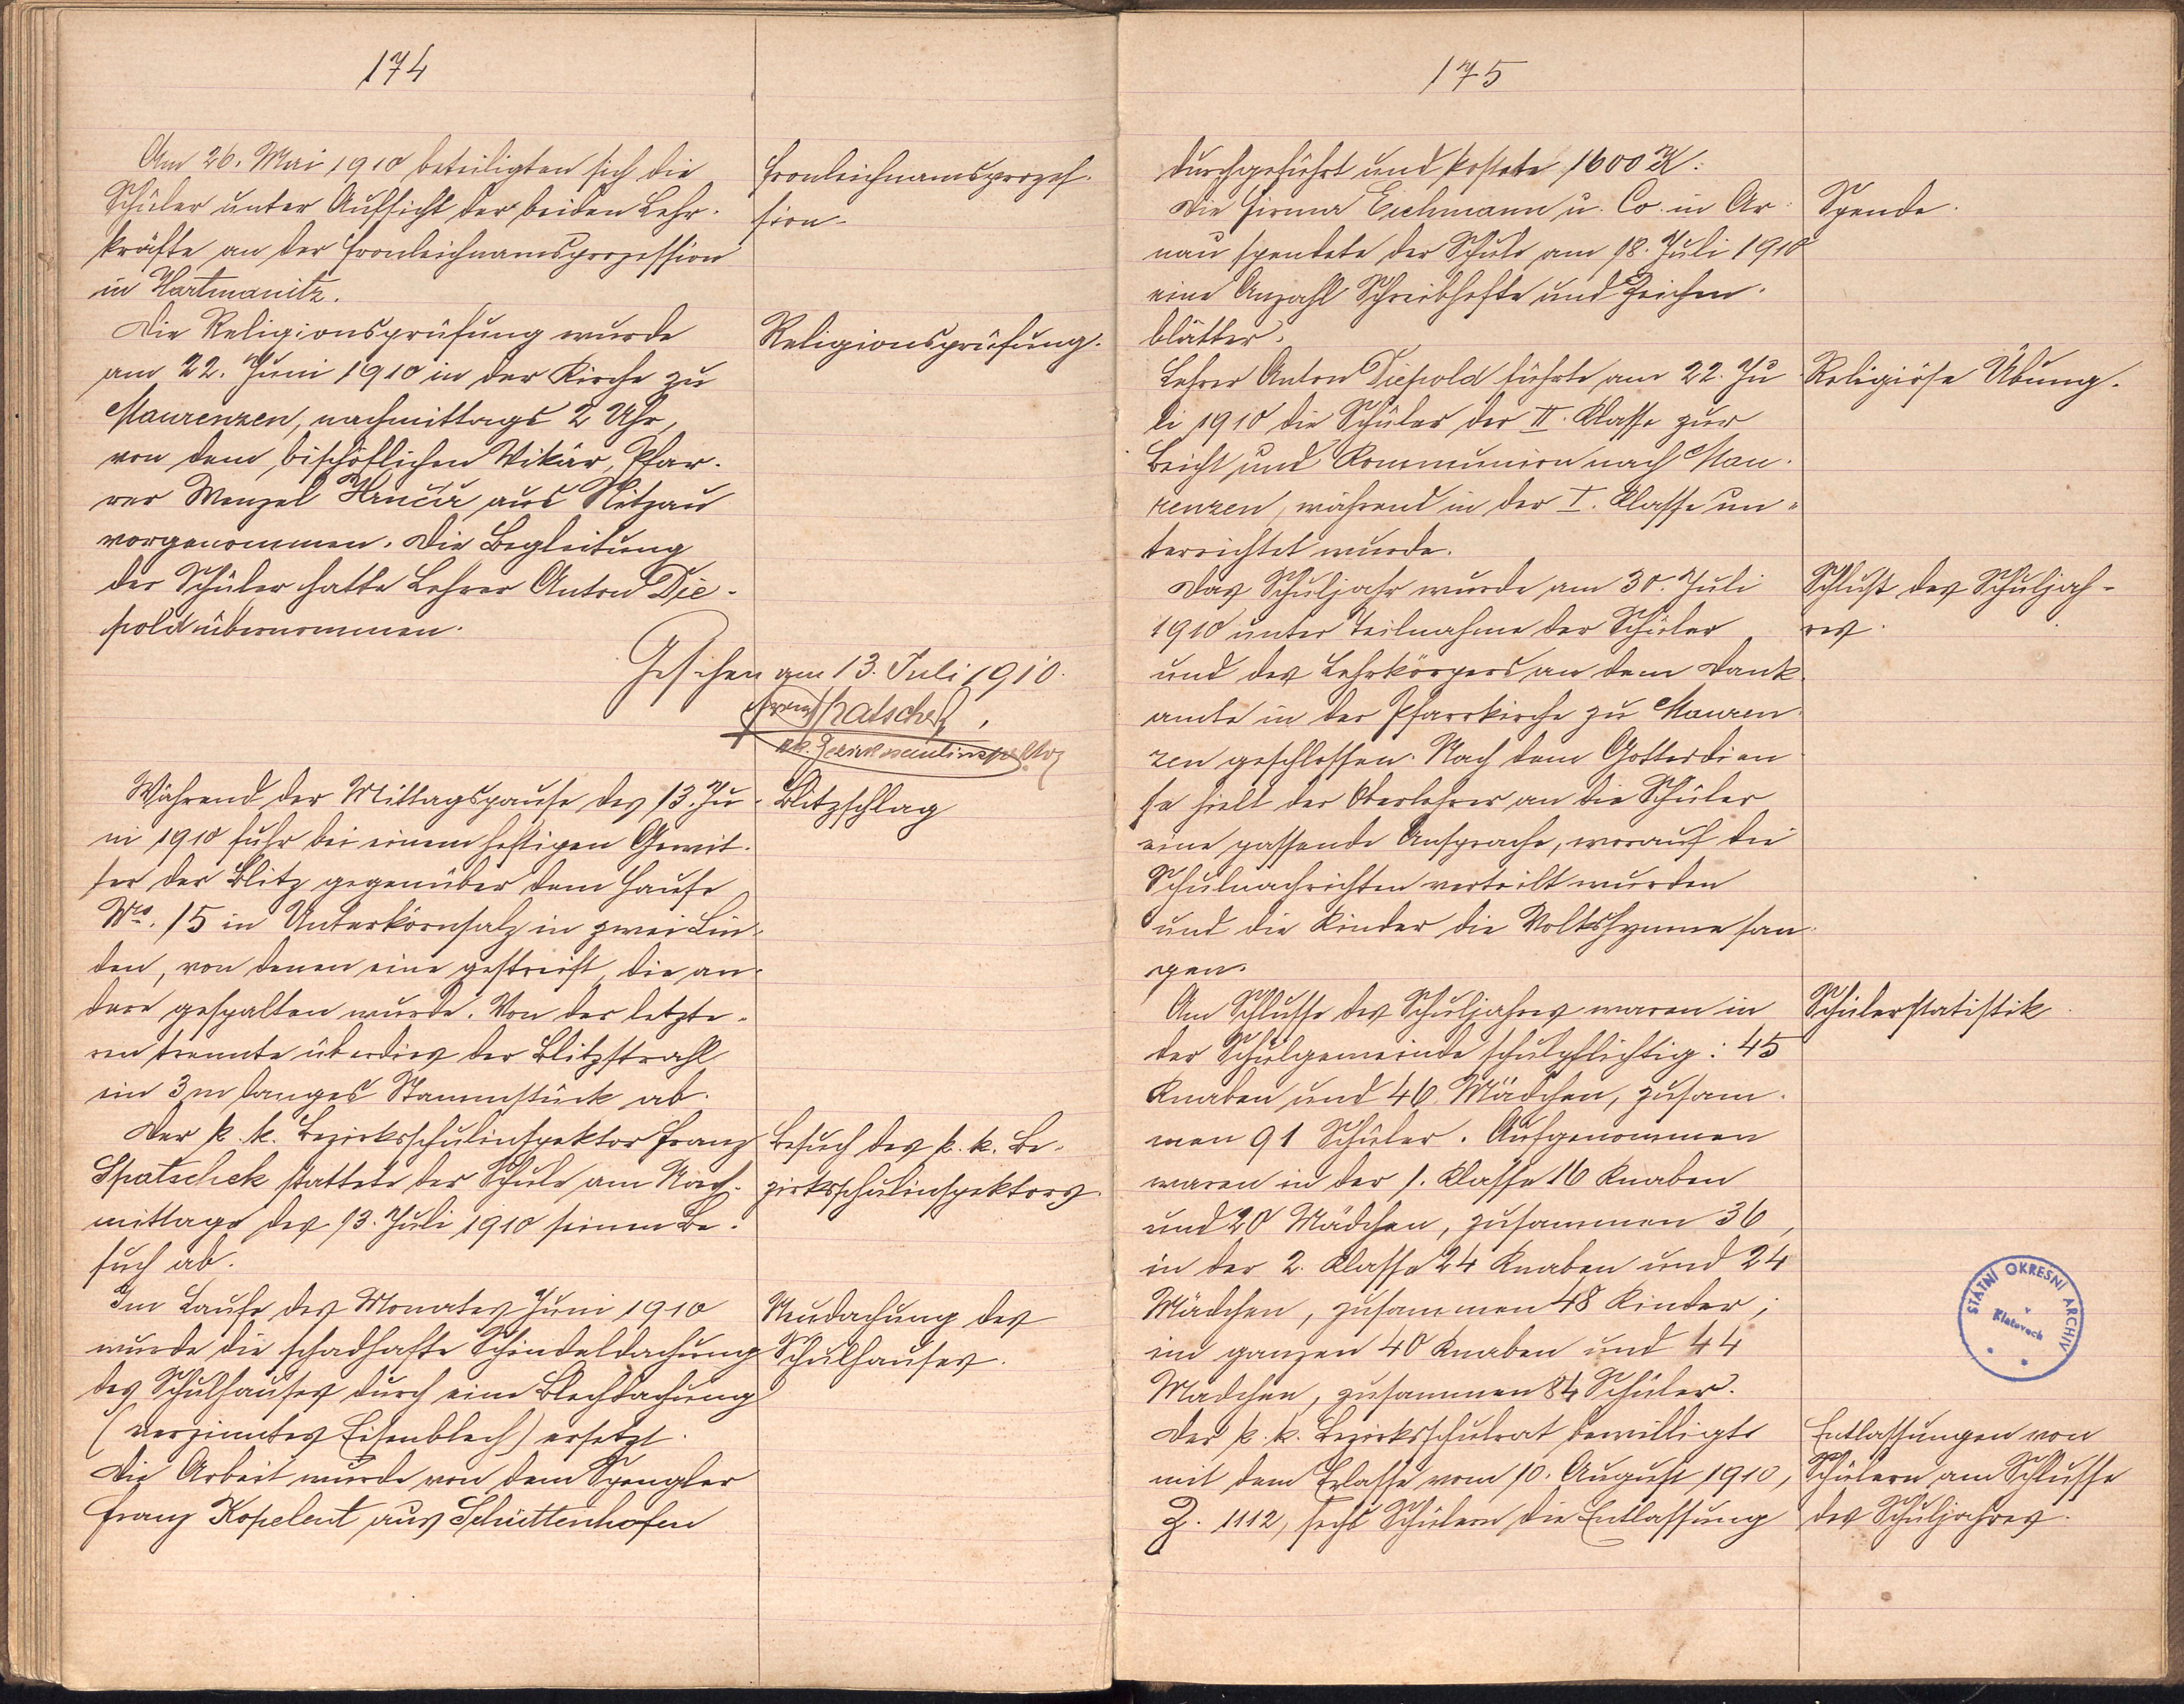 174
Am 26. Mai 1910 beteiligten sich die
Schüler unter Aufsicht der beiden Lehr-
kräfte an der Fronleichnamsprozession
in Hartmanitz.
Fronleichnamsprozes-
sion.
Die Religionsprüfung wurde
am 22. Juni 1910 in der Kirche zu
Maurenzen, nachmittags 2 Uhr,
von dem bischöflichen Vikär, Pfar-
rer Wenzel Hrnčíř aus Nitzau
vorgenommen. Die Begleitung
der Schüler hatte Lehrer Anton Die-
pold übernommen.
Religionsprüfung.
Gesehen am 13. Juli 1910.
Franz Spatschek,
k.k. Bezirksschulinspektor
Während der Mittagspause des 13. Ju-
ni 1910 fuhr bei einem heftigen Gewit-
ter der Blitz gegenüber dem Hause
Nro. 15 in Unterkörnsalz in zwei Lin-
den, von denen eine gestreift, die an-
dere gespalten wurde. Von der letzte-
ren trennte überdies der Blitzstrahl
ein 3 m langes Stammstück ab.
Blitzschlag
Der k. k. Bezirksschulinspektor Franz
Spatschek stattete der Schule am Nach-
mittage des 13. Juli 1910 seinen Be-
such ab.
Besuch des k. k. Be-
zirksschulinspektors.
Im Laufe des Monates Juni 1910
wurde die schadhafte Schindeldachung
des Schulhauses durch eine Blechdachung
(verzinntes Eisenblech) ersetzt.
Die Arbeit wurde von dem Spengler
Franz Kopelent aus Schüttenhofen
Neudachung des
Schulhauses.
175
durchgeführt und kostete 1600 K.
Die Firma Eichmann u. Co. in Ar-
nau spendete der Schule am 18. Juli 1910
eine Anzahl Schreibhefte und Zeichen-
blätter.
Spende.
Lehrer Anton Diepold führte am 22. Ju-
li 1910 die Schüler der II. Klasse zur
Beicht und Kommunion nach Mau-
renzen, während in der I. Klasse un-
terrichtet wurde.
Religiöse Übung.
Das Schuljahr wurde am 30. Juli
1910 unter Teilnahme der Schüler
und des Lehrkörpers an dem Dank-
amte in der Pfarrkirche zu Mauren-
zen geschlossen. Nach dem Gottesdien-
ste hielt der Oberlehrer an die Schüler
eine passende Ansprache, worauf die
Schulnachrichten verteilt wurden
und die Kinder die Volkshymne san-
gen.
Schluß des Schuljah-
res.
Am Schlusse des Schuljahres waren in
der Schulgemeinde schulpflichtig: 45
Knaben und 46 Mädchen, zusam-
men 91 Schüler. Aufgenommen
waren in der 1. Klasse 16 Knaben
und 20 Mädchen, zusammen 36,
in der 2. Klasse 24 Knaben und 24
Mädchen, zusammen 48 Kinder;
im ganzen 40 Knaben und 44
Mädchen, zusammen 84 Schüler.
Schülerstatistik.
STÁTNÍ OKRESNÍ ARCHIV
v
Klatovech
Der k. k. Bezirksschulrat bewilligte
mit dem Erlasse vom 10. August 1910,
Z. 1112, sechs Schülern die Entlassung
Entlassungen von
Schülern am Schlusse
des Schuljahres.